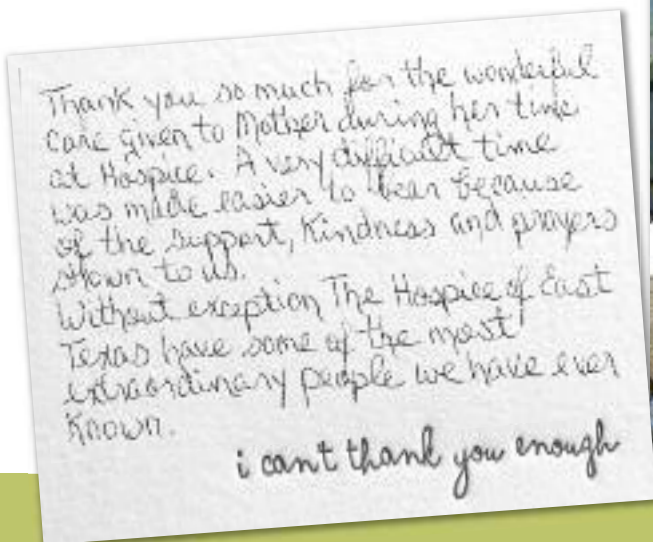 Thank you so much for the wonderful
care given to Mother during her time
at Hospice. A very difficult time
was made easier to bear because
of the support, kindness and prayers
shown to us.
Without exception The Hospice of East
Texas have some of the most
extraordinary people we have ever
known.
i can't thank you enough